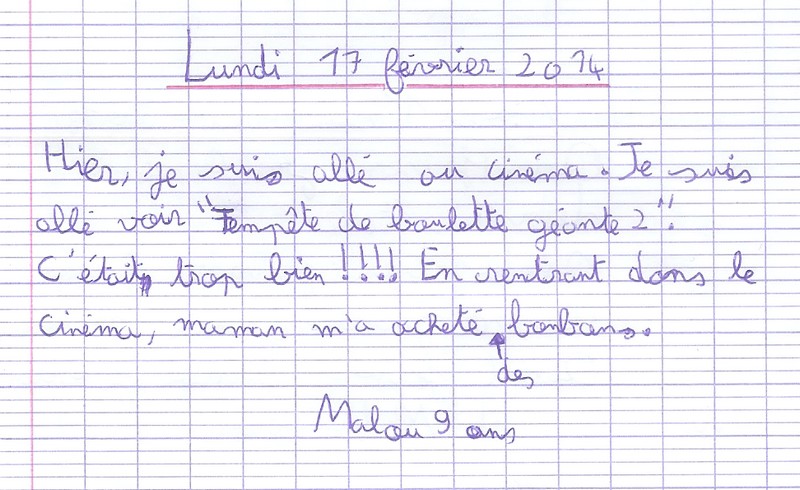 Lundi 17 février 2014
Hier, je suis allé au cinéma. Je suis
allé voir "Tempête de boulette géante 2".
C'était trop bien !!!! En rentrant dans le
cinéma, maman m'a acheté bonbons.
des
Malou 9 ans